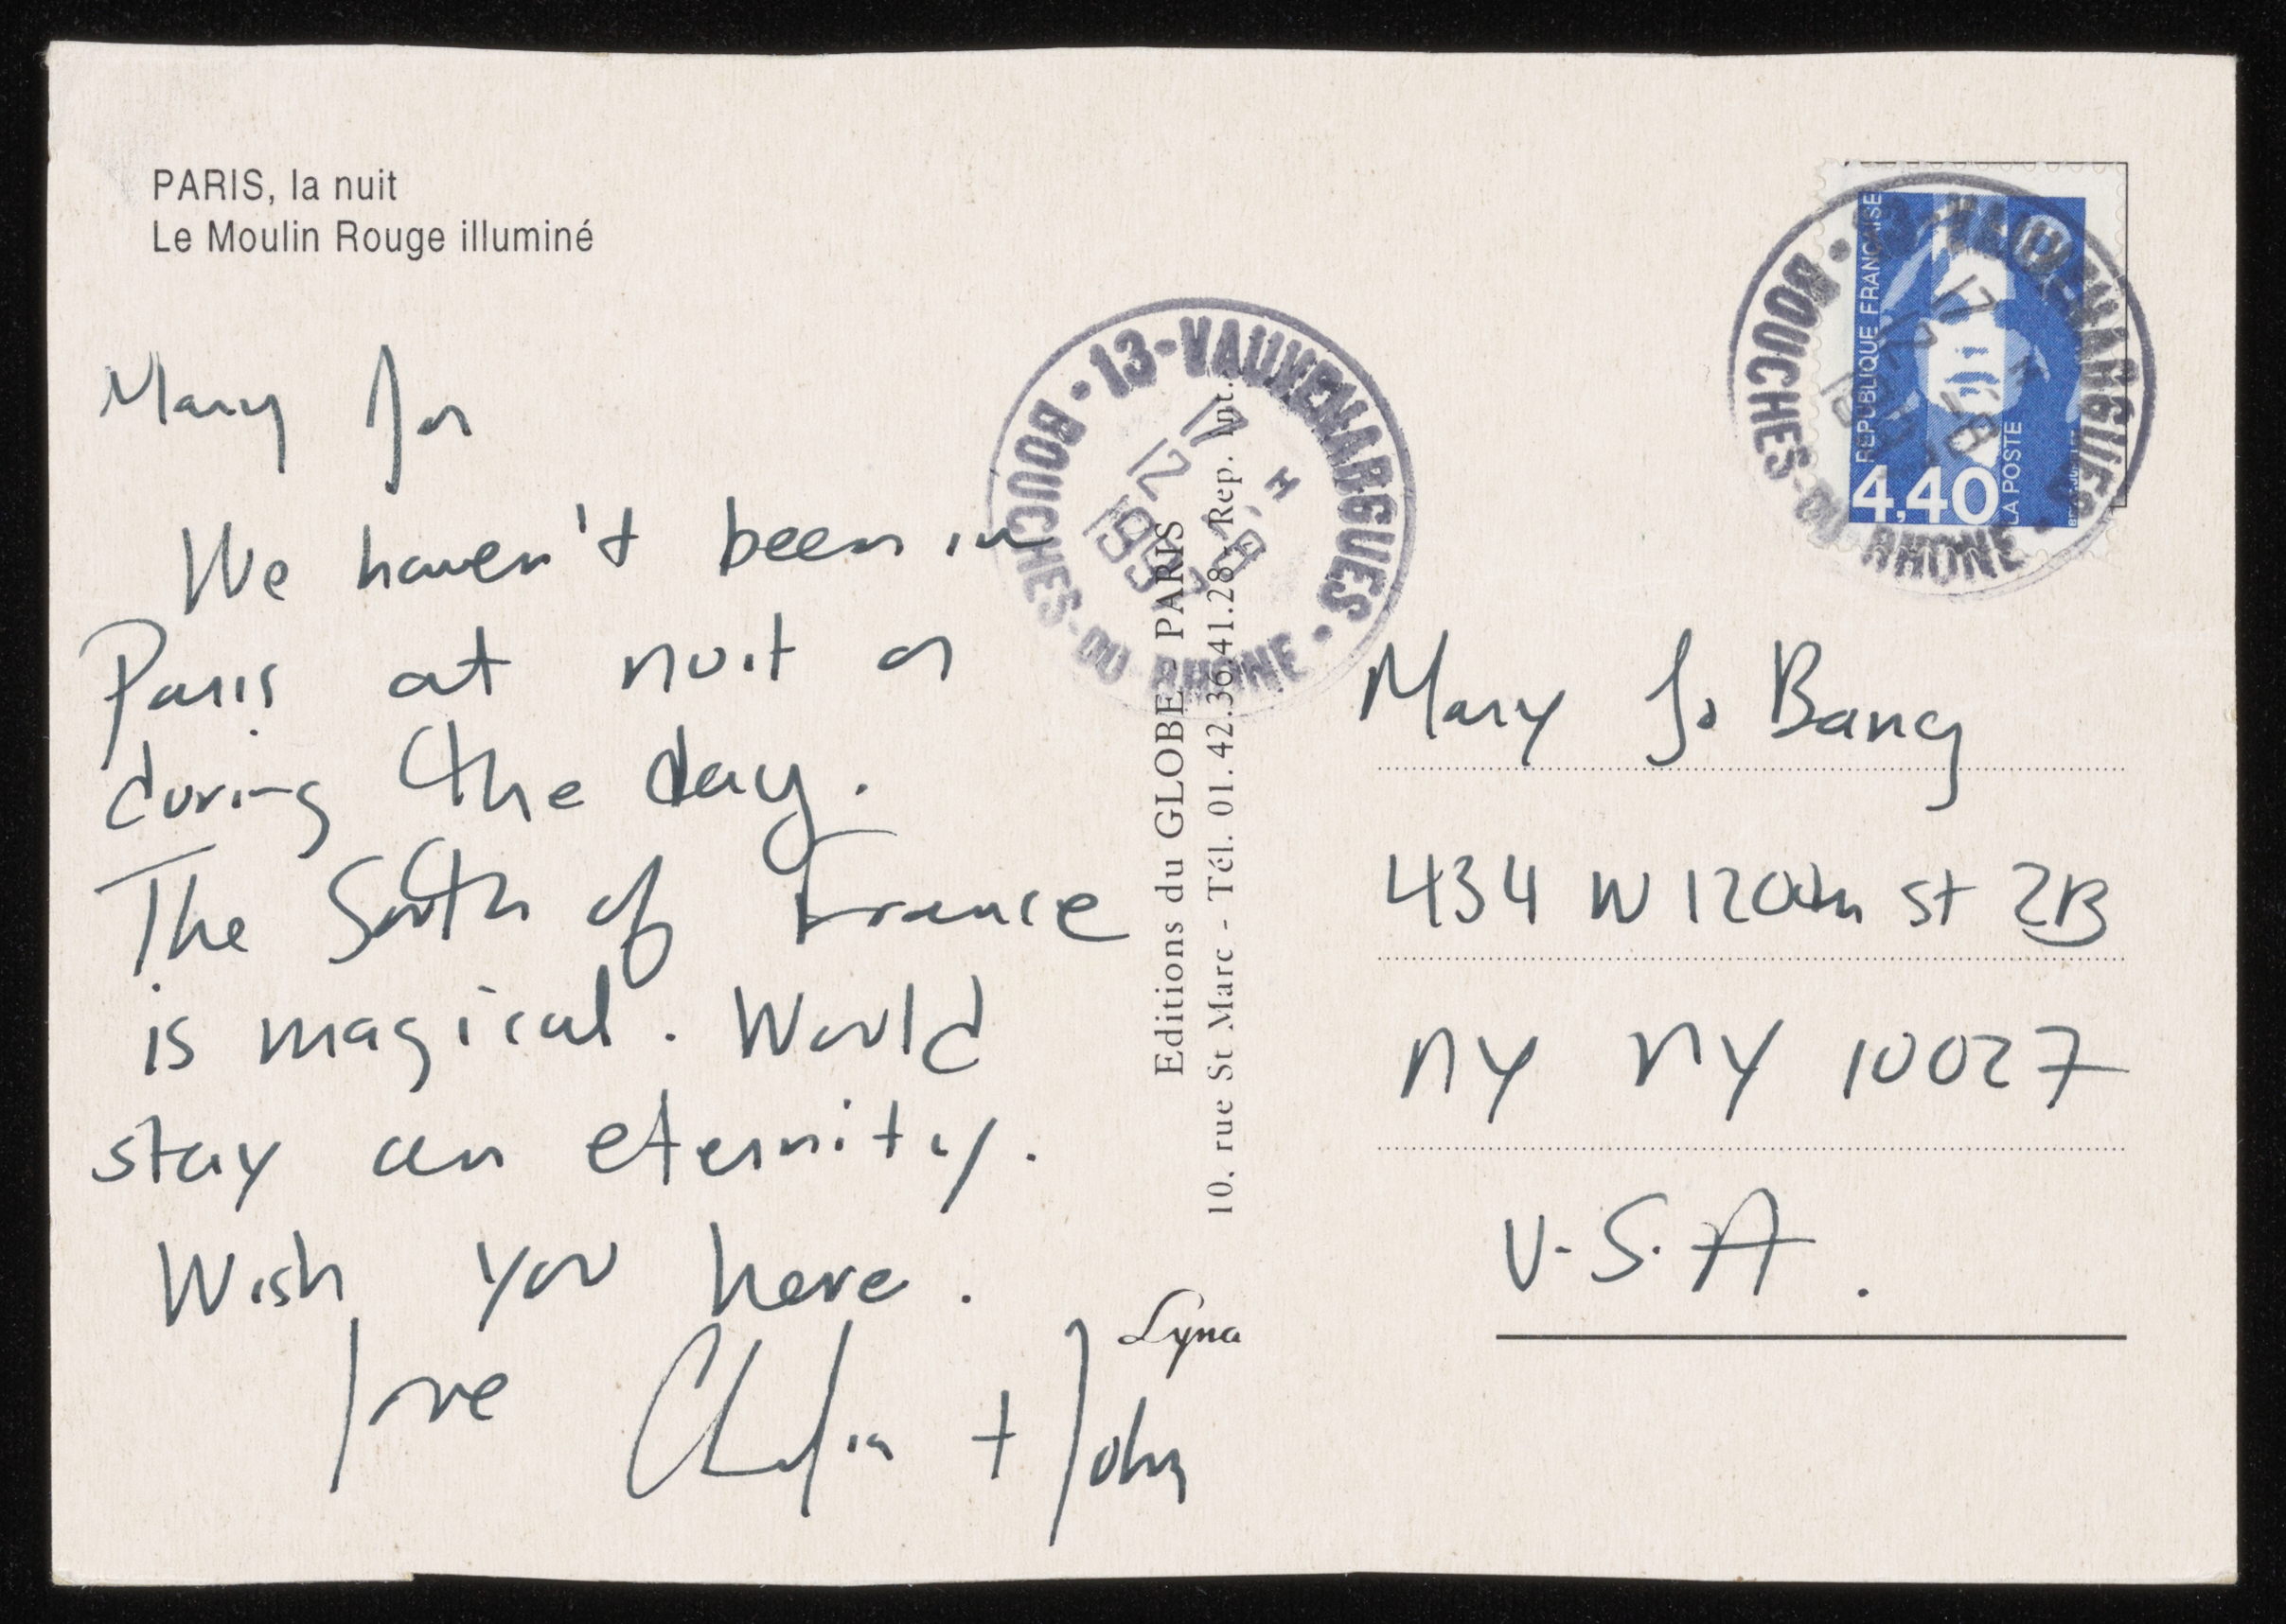 PARIS, la nuit
Le Moulin Rouge illuminé
Mary Jo
We haven't been in
Paris at nuit or
during the day.
The South of France
is magical. Would
stay an eternity.
Wish you here.
love Claudia + John
Editions du GLOBE - PARIS
10, rue St Marc - Tél. 01.42.36.41.28 - Rep. Int.
Lyna
13-VAUVENARGUES
17 - H
12 - 8
199
BOUCHES-DU-RHONE
REPUBLIQUE FRANÇAISE
4,40
LA POSTE
13-VAUVENARGUES
17
12
BOUCHES-DU-RHONE
Mary Jo Bang
434 W 120th St 2B
NY NY 10027
U.S.A.